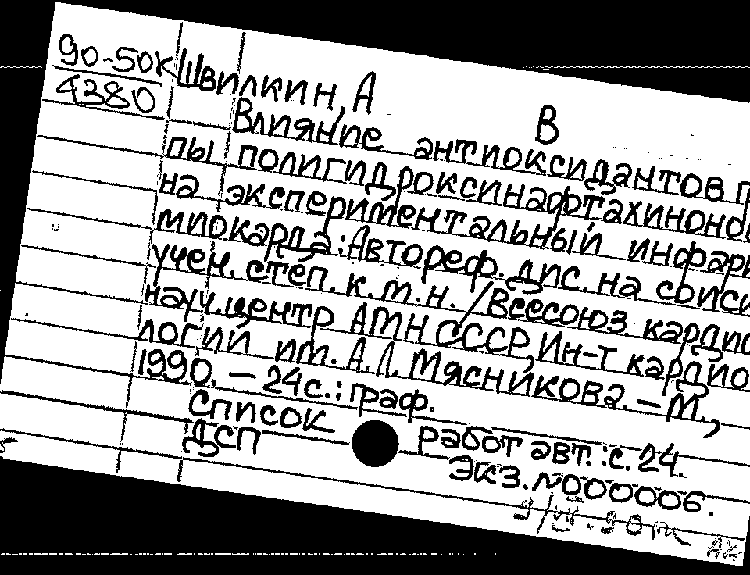 90-50к Швилкин, А В
4380 Влияние антиоксидантов г
пы полигидроксинафтахиноно
на экспериментальный инфар
миокарда: Автореф. дис. на соиск
учен. степ. к.м.н. / Всесоюз кардио
науч.центр АМН СССР, Ин-т кардио
логии им. А.Л. Мясникова. – М.,
1990. – 24 с.: граф.
Список работ авт.: с. 24.
ДСП Экз. №000006.